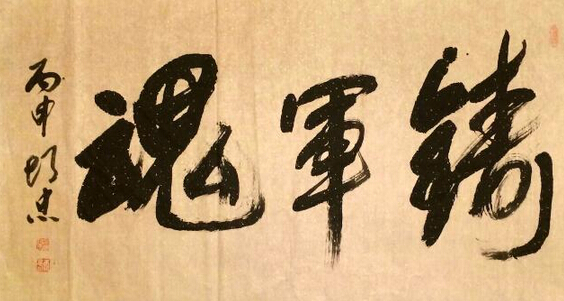 鑄軍魂
丙申